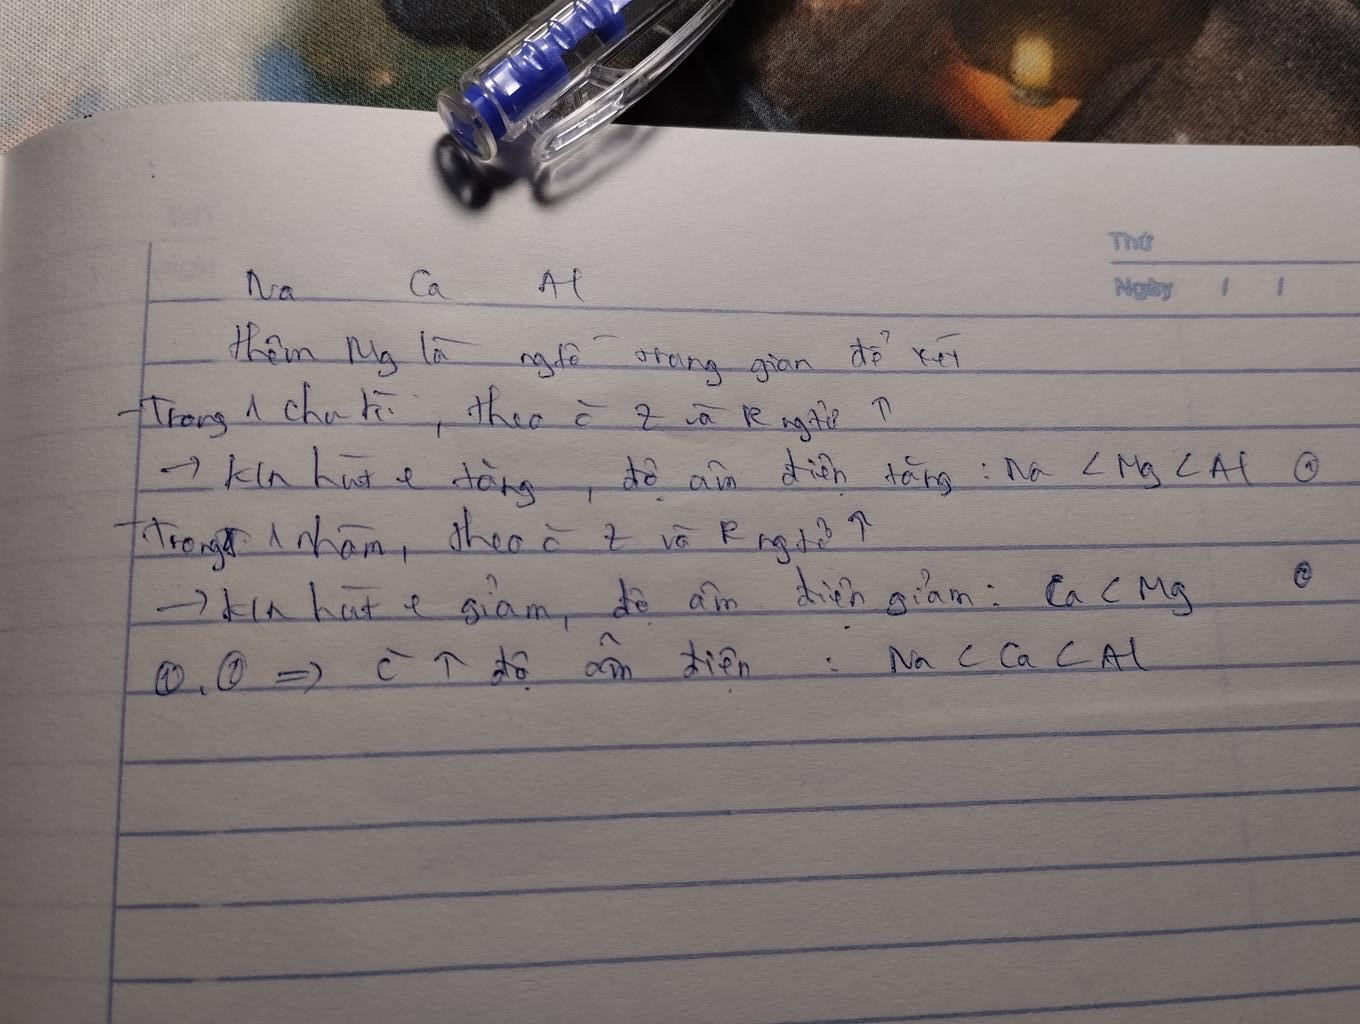 Thứ
Ngày / /
Na Ca Al
thêm Mg là ngtố trung gian để xét
-Trong 1 chu kì, theo c̀ Z và R ngtử ↑
→ kln hút e tăng, độ âm điện tăng: Na < Mg < Al ①
-Trong 1 nhóm, theo c̀ Z và R ngtử ↑
→ kln hút e giảm, độ âm điện giảm: Ca < Mg ②
①, ② => c̀ ↑ độ âm điện : Na < Ca < Al